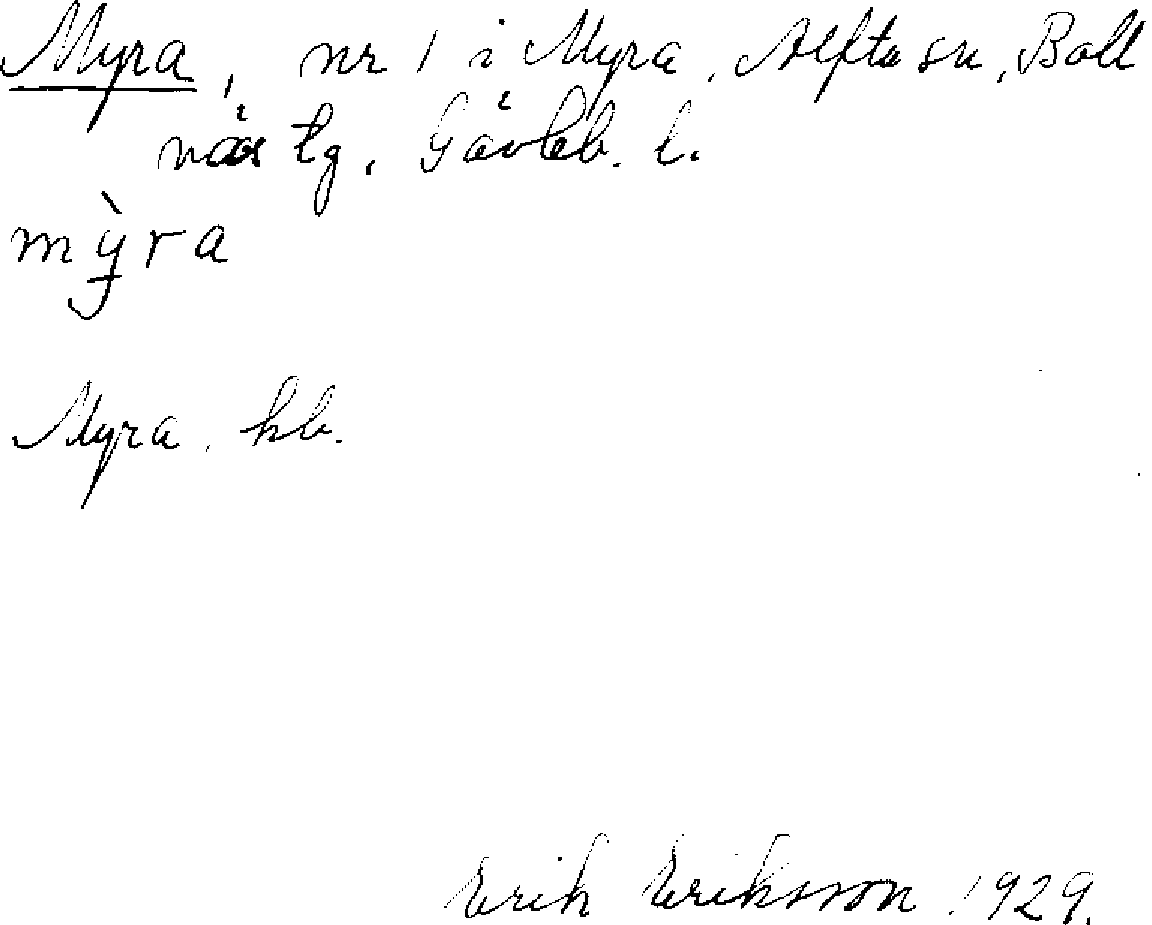 Myra, nr 1 i Myra, Alfta sn, Boll
näs tg, Gävleb. l.
mỳra
Myra, kb.
Erik Eriksson 1929.